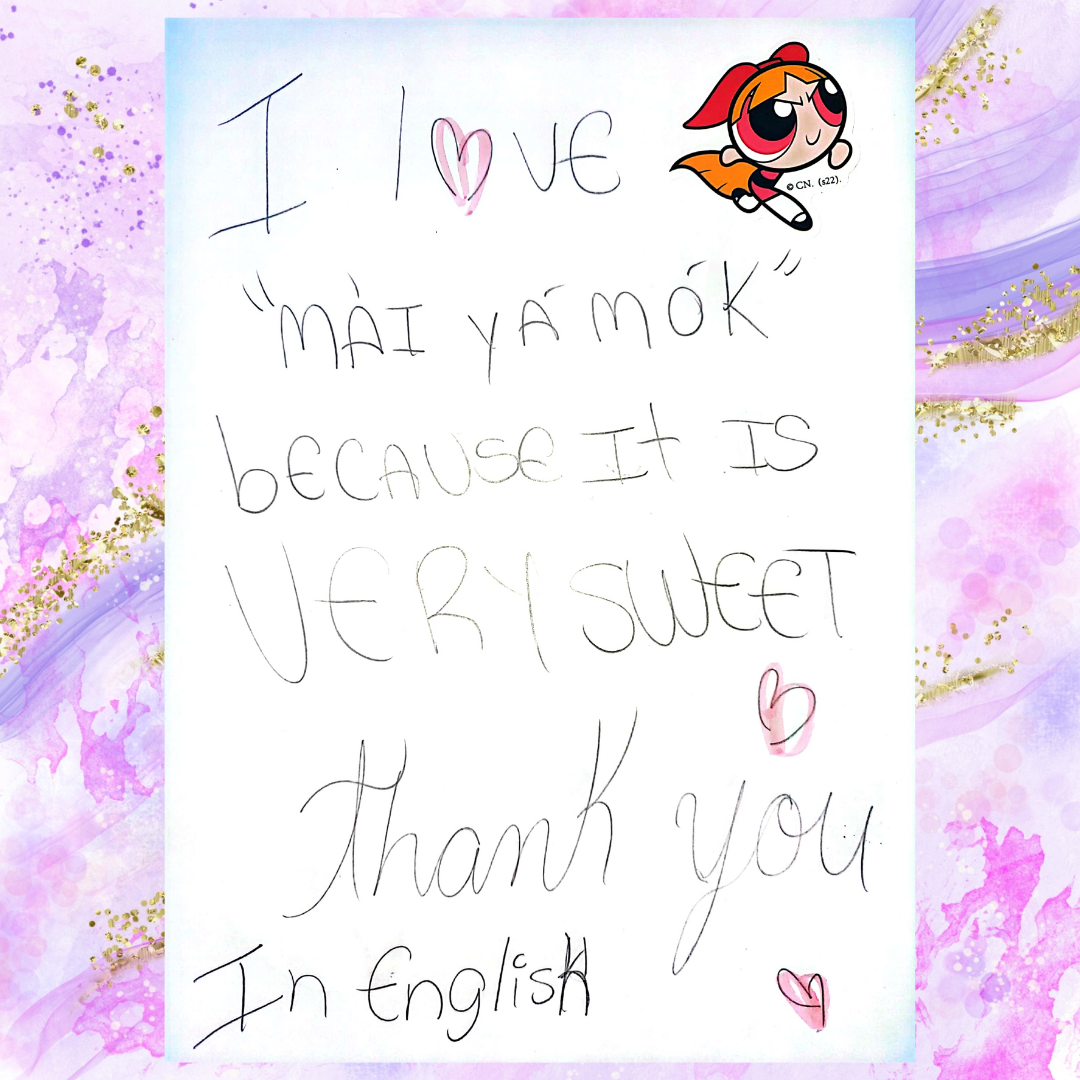 I love
© CN. (s22).
"MÀI YÁ MÓK"
bECAUSE It IS
VERY SWEET
thank you
In English